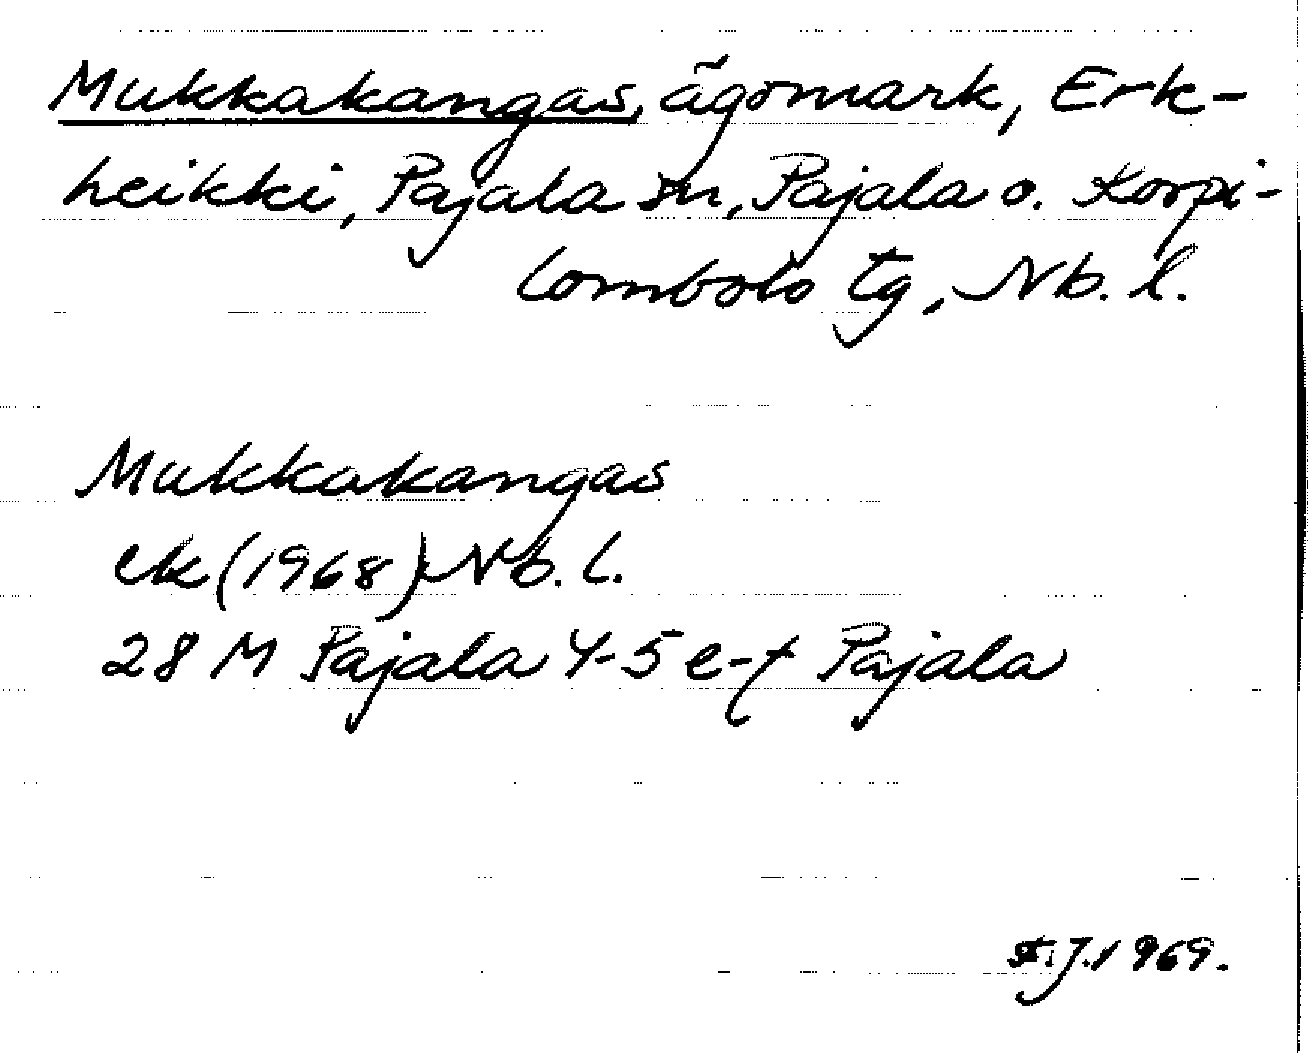 Mukkakangas, ägomark, Erk-
heikki, Pajala sn, Pajala o. Korpi-
lombolo tg, Nb. l.
Mukkakangas
ek (1968) Nb. l.
28 M Pajala 4-5 e-f Pajala
J. 1969.